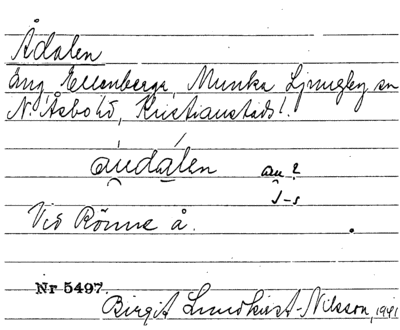 Ådalen
Äng, Ellenberga, Munka Ljungby sn
N. Åsbo hd, Kristianstads l.
áudàlen au ?
J-s
Vid Rönne å.
Nr 5497.
Birgit Lundkvist-Nilsson, 1941